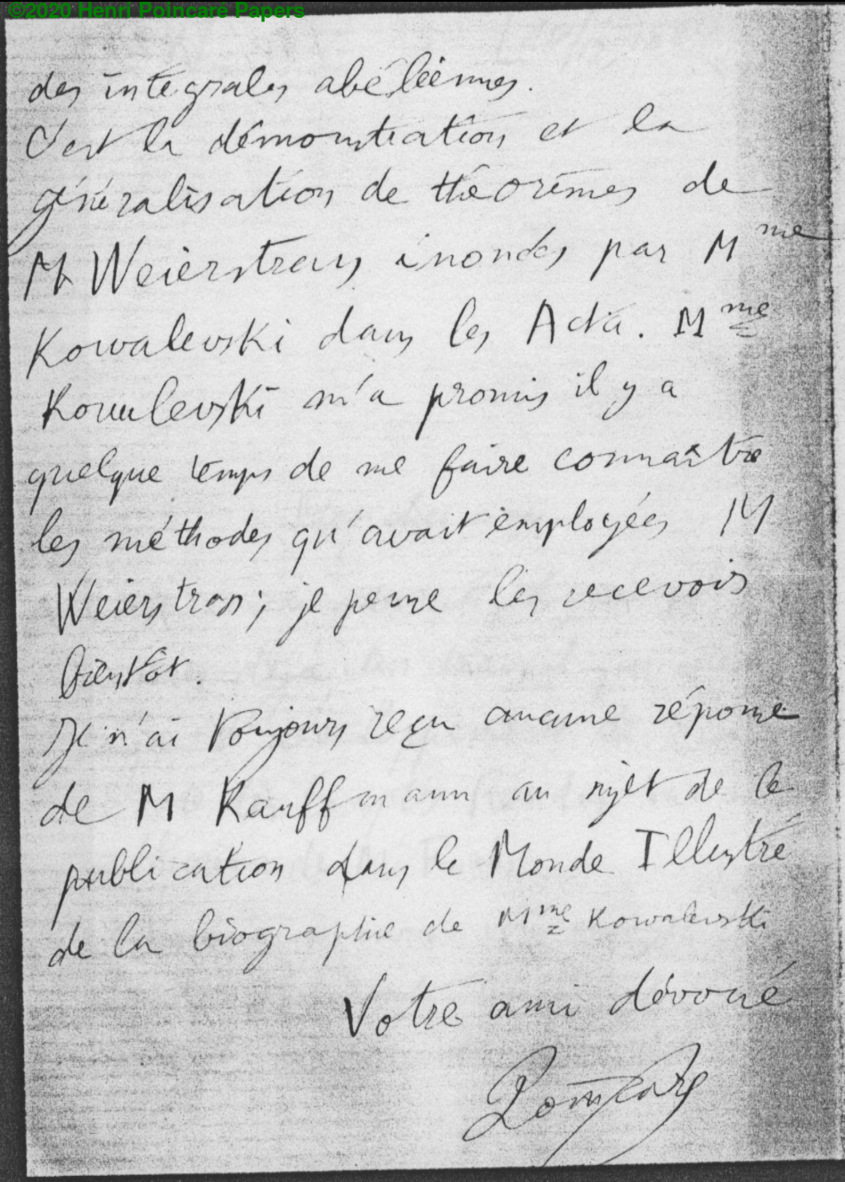 ©2020 Henri Poincare Papers
des intégrales abéliennes.
C'est la démonstration et la
généralisation de théorèmes de
M Weierstrass énoncés par M^me
Kowalevski dans les Acta. M^me
Kowalevski m'a promis il y a
quelque temps de me faire connaître
les méthodes qu'avait employées M
Weierstrass; je pense les recevoir
bientôt.
Je n'ai toujours reçu aucune réponse
de M Kauffmann au sujet de la
publication dans le Monde Illustré
de la biographie de M^me Kowalevski
Votre ami dévoué
Poincaré